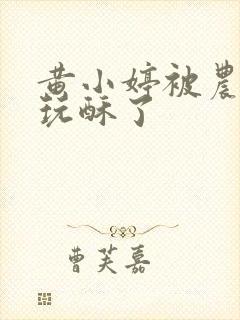 黄小婷被農
玩酥了
曹芙嘉